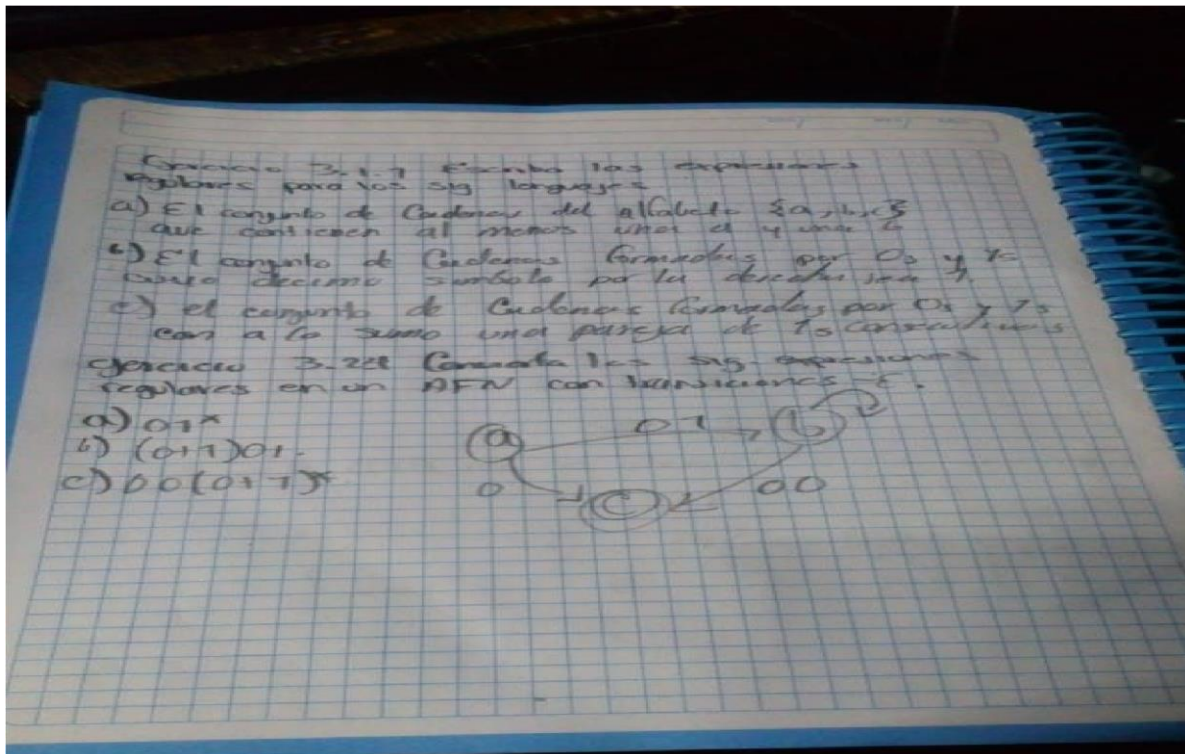 Ejercicio 3.1.1 Escriba las expresiones
regulares para los sig lenguajes
a) El conjunto de Cadenas del alfabeto {a, b, c}
que contienen al menos una a y una b
b) El conjunto de Cadenas formadas por 0s y 1s
cuyo decimo simbolo por la derecha sea 1.
c) el conjunto de Cadenas formadas por 0s y 1s
con a lo sumo una pareja de 1s consecutivos
ejercicio Convierta los sig. expresiones
regulares en un AFN con transiciones ε.
a) 01*
b) (0+1)01
c) 00(0+1)*
a 01 b
0 c 00